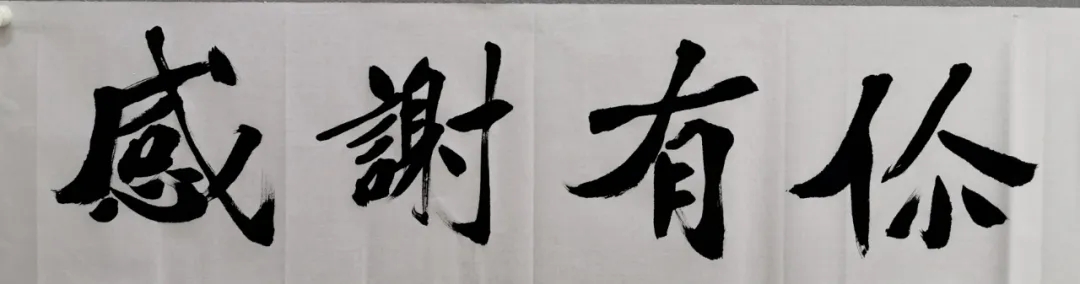 感謝有你